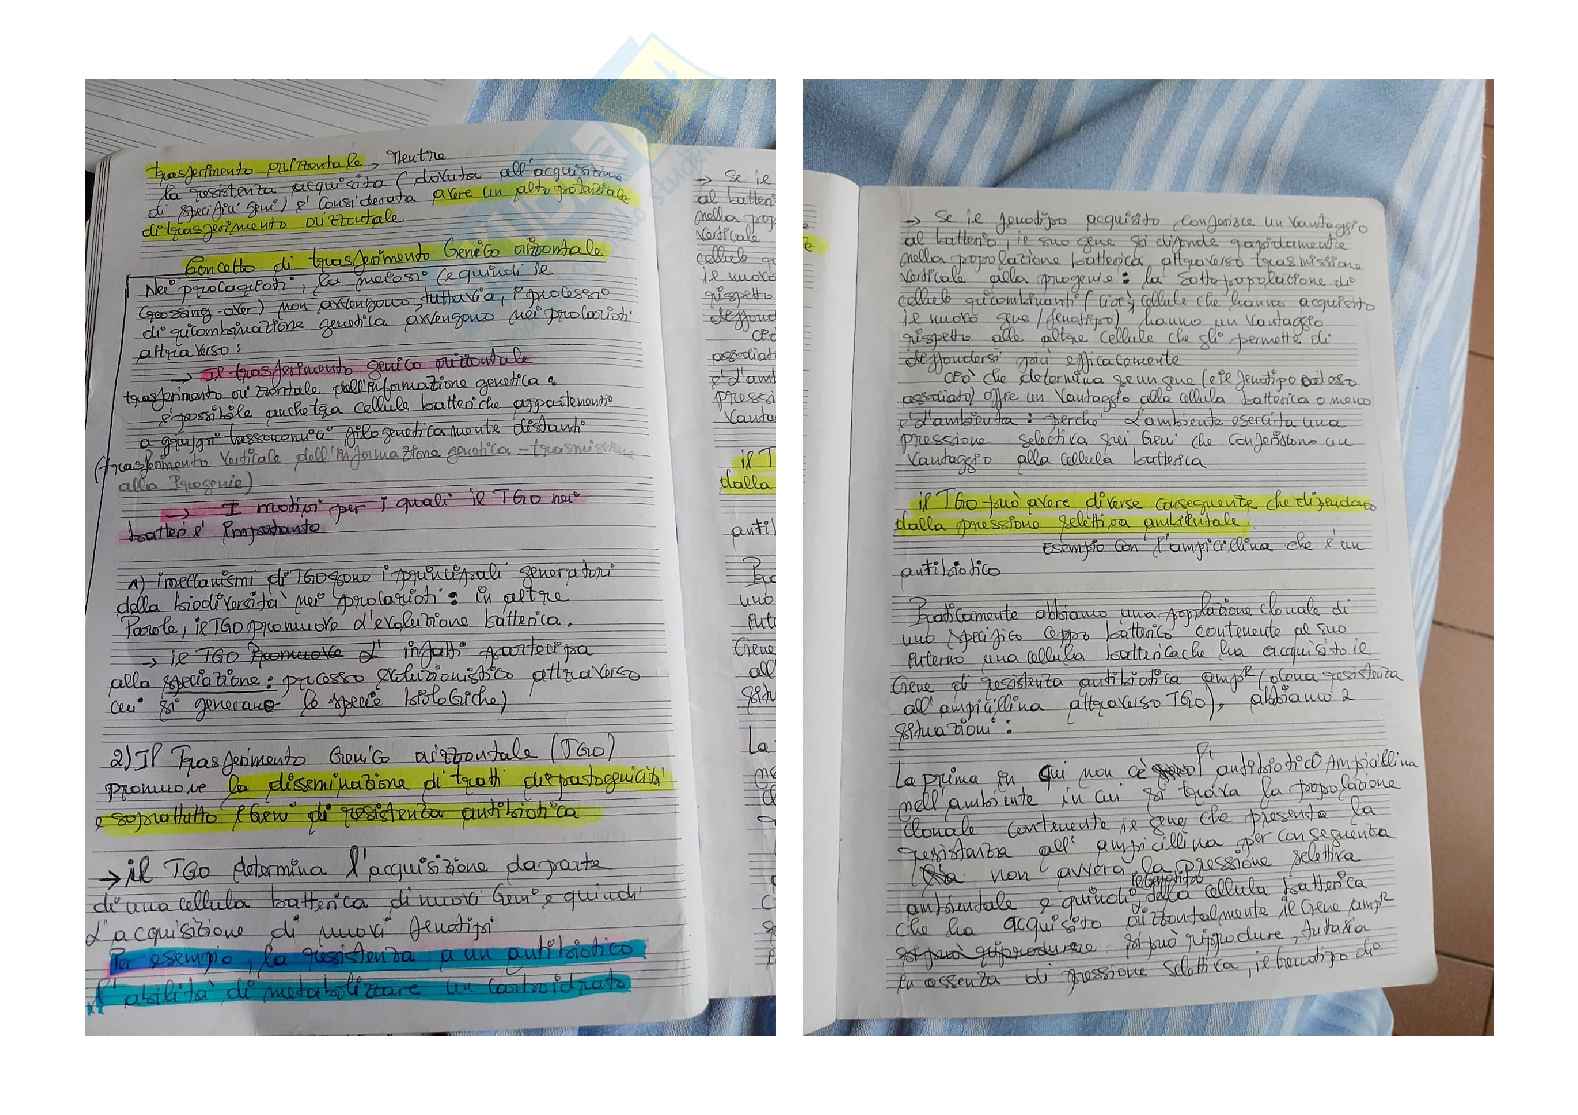 trasferimento orizzontale, mentre
la resistenza acquisita (dovuta all'acquisizione
di specifici geni) è considerata avere un alto potenziale
di trasferimento orizzontale
Concetto di trasferimento Genico orizzontale
Nei procarioti, la meiosi (e quindi il
crossing-over) non avvengono, tuttavia, i processi
di ricombinazione genetica avvengono nei procarioti
attraverso:
→ il trasferimento genico orizzontale
trasferimento orizzontale dell'informazione genetica è
possibile anche tra cellule batteriche appartenenti
a gruppi tassonomici filogeneticamente distanti
(trasferimento verticale dell'informazione genetica - trasmissione
alla Progenie)
→ I motivi per i quali il TGO nei
batteri è importante
1) i meccanismi di TGO sono i principali generatori
della biodiversità nei procarioti: in altre
Parole, il TGO promuove l'evoluzione batterica.
→ il TGO infatti partecipa
alla speciazione: processo evoluzionistico attraverso
cui si generano le specie biologiche)
2) Il Trasferimento Genico orizzontale (TGO)
promuove la disseminazione di tratti di patogenicità
e soprattutto i Geni di resistenza antibiotica
→ il TGO determina l'acquisizione da parte
di una cellula batterica di nuovi Geni e quindi
L'acquisizione di nuovi fenotipi
Per esempio, la resistenza a un antibiotico
l'abilità di metabolizzare un carboidrato
→ Se il fenotipo acquisito conferisce un vantaggio
al batterio, il suo gene si difonde rapidamente
nella popolazione batterica, attraverso trasmissione
verticale alla progenie: la sottopopolazione di
cellule ricombinanti (cioè, cellule che hanno acquisito
il nuovo gene/fenotipo), hanno un vantaggio
rispetto alle altre cellule che gli permette di
diffondersi più efficacemente
Ciò che determina se un gene (e il fenotipo ad esso
associato) offre un vantaggio alla cellula batterica o meno
è l'ambiente: perché L'ambiente esercita una
pressione selettiva sui Geni che conferiscono un
vantaggio alla cellula batterica
il TGO può avere diverse conseguenze che dipendono
dalla pressione selettiva ambientale
Esempio con l'ampicillina che è un
antibiotico
Praticamente abbiamo una popolazione clonale di
uno specifico ceppo batterico contenente al suo
interno una cellula batterica che ha acquisito il
Gene di resistenza antibiotica ampR (dona resistenza
all'ampicillina attraverso TGO), abbiamo 2
situazioni:
La prima in cui non c'è l'antibiotico Ampicillina
nell'ambiente in cui si trova la popolazione
clonale contenente il gene che presenta la
resistenza all'ampicillina per conseguenza
non avverrà la pressione selettiva
ambientale e quindi della cellula batterica
che ha acquisito orizzontalmente il Gene ampR
si può riprodurre si può riprodure, tutavia
in assenza di pressione selettiva, il fenotipo di